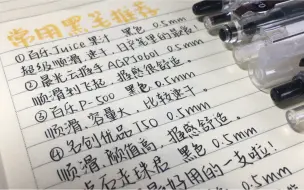 常用黑笔推荐
①百乐Juice 果汁 黑色 0.5mm
超级顺滑、速干、日P党里的最爱!
②晨光云握者 AGPJ0601 0.5mm
顺滑到飞起、握感很舒适。
③百乐P-500 黑色 0.5mm
顺滑、容量大、比较速干。
④名创优品 150 0.5mm
顺滑、颜值高、握感舒适。
点石走珠君 黑色 0.5mm
好用的一支啦!